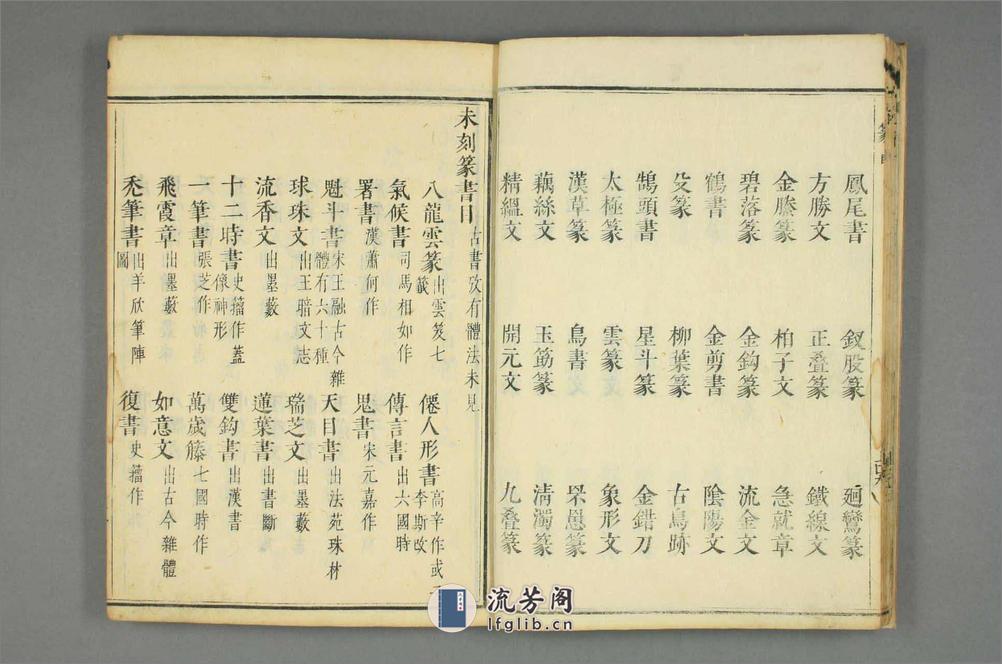 鳳尾書 釵股篆 廻鸞篆
方勝文 正叠篆 鐵線文
金縢篆 柏子文 急就章
碧落篆 金鈎篆 流金文
鶴書 金剪書 陰陽文
殳篆 柳葉篆 古鳥跡
鵠頭書 星斗篆 金錯刀
太極篆 雲篆 象形文
漢草篆 鳥書 罘罳篆
藕絲文 玉筯篆 清濁篆
精縕文 開元文 九叠篆
未刻篆書目 古書攷有體法未見
八龍雲篆 出雲笈七籤 僊人形書 高辛作或
李斯改
氣候書 司馬相如作 傳言書 出六國時
署書 漢蕭何作 思書 宋元嘉作
魁斗書 宋王融古今雜體有六十種 天目書 出法苑珠材
球珠文 出王暗文志 瑞芝文 出墨藪
流香文 出墨藪 蓮葉書 出書斷
十二時書 史籀作蓋像神形 雙鈎書 出漢書
一筆書 張芝作 萬歲籐 七國時作
飛霞章 出墨藪 如意文 出古今雜體
禿筆書 出羊欣筆陣圖 復書 史籀作
流芳阁
lfglib.cn